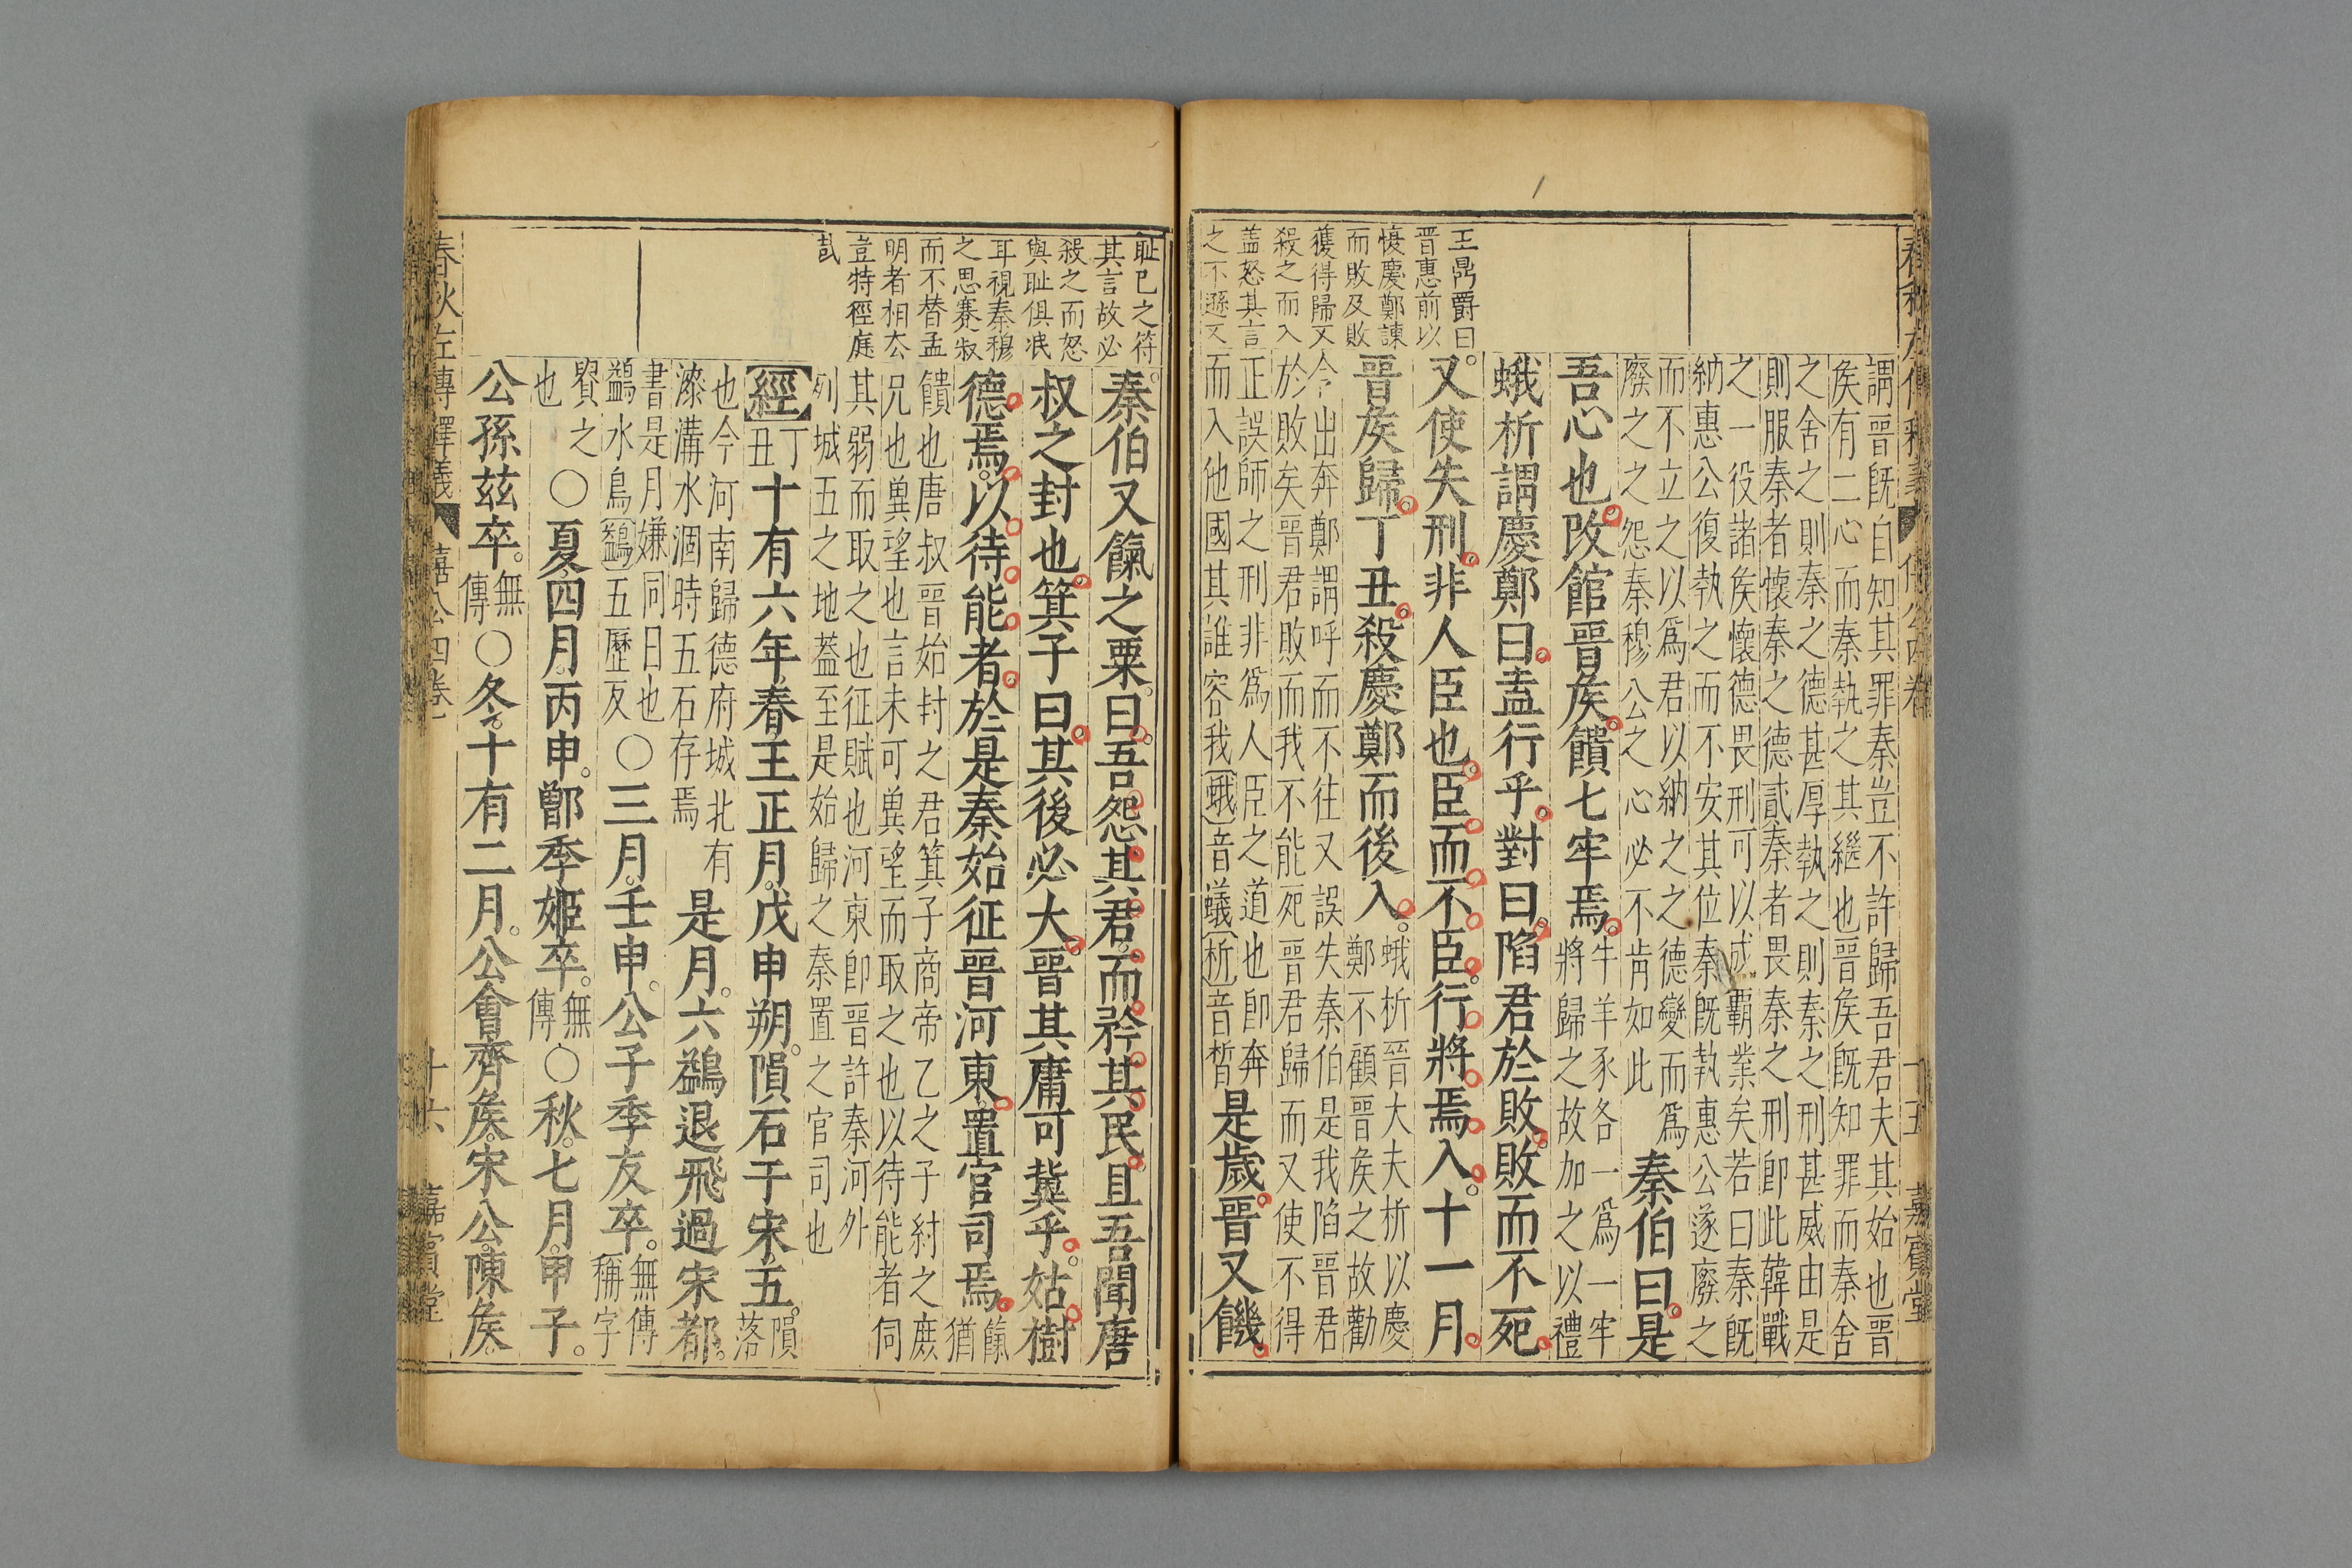 春秋左傳釋義 僖公四卷 十五 嘉賓堂
謂晉旣自知其罪秦豈不許歸吾君夫其始也晉
矦有二心而秦執之其繼也晉矦旣知罪而秦舍
之舍之則秦之德甚厚執之則秦之刑甚威由是
則服秦者懷秦之德貳秦者畏秦之刑卽此韓戰
之一役諸矦懷德畏刑可以成霸業矣若曰秦旣
納惠公復執之而不安其位秦旣執惠公遂廢之
而不立之以爲君以納之之德變而爲
廢之之怨秦穆公之心必不肯如此
秦伯曰是
吾心也改館晉矦饋七牢焉
牛羊豕各一爲一牢
將歸之故加之以禮
蛾析謂慶鄭曰盍行乎對曰陷君於敗敗而不死
又使失刑非人臣也臣而不臣行將焉入十一月
晉矦歸丁丑殺慶鄭而後入
蛾析晉大夫析以慶
鄭不顧晉矦之故勸
令出奔鄭謂呼而不往又誤失秦伯是我陷晉君
於敗矣晉君敗而我不能死晉君歸而又使不得
正誤師之刑非爲人臣之道也卽奔
而入他國其誰容我蛾音蟻析音晳
是歲晉又饑
王鼎爵曰
晉惠前以
愎慶鄭諫
而敗及敗
獲得歸又
殺之而入
蓋怒其言
之不遜又
恥已之符
其言故必
殺之而怒
與恥俱泯
耳視秦穆
之思蹇叔
而不替孟
明者相去
豈特徑庭
哉
秦伯又餼之粟曰吾怨其君而矜其民且吾聞唐
叔之封也箕子曰其後必大晉其庸可冀乎姑樹
德焉以待能者於是秦始征晉河東置官司焉
餼猶
饋也唐叔晉始封之君箕子商帝乙之子紂之庶
兄也兾望也言未可兾望而取之也以待能者伺
其弱而取之也征賦也河東卽晉許秦河外
列城五之地蓋至是始歸之秦置之官司也
經
丁丑
十有六年春王正月戊申朔隕石于宋五
隕落
也今河南歸德府城北有
漆溝水涸時五石存焉
是月六鷁退飛過宋都
書是月嫌同日也
鷁水鳥鷁五歷反
〇三月壬申公子季友卒
無傳稱字
賢之也
〇夏四月丙申鄫季姬卒
無傳
〇秋七月甲子
公孫玆卒
無傳
〇冬十有二月公會齊矦宋公陳矦
春秋左傳釋義 僖公四卷 十六 嘉賓堂